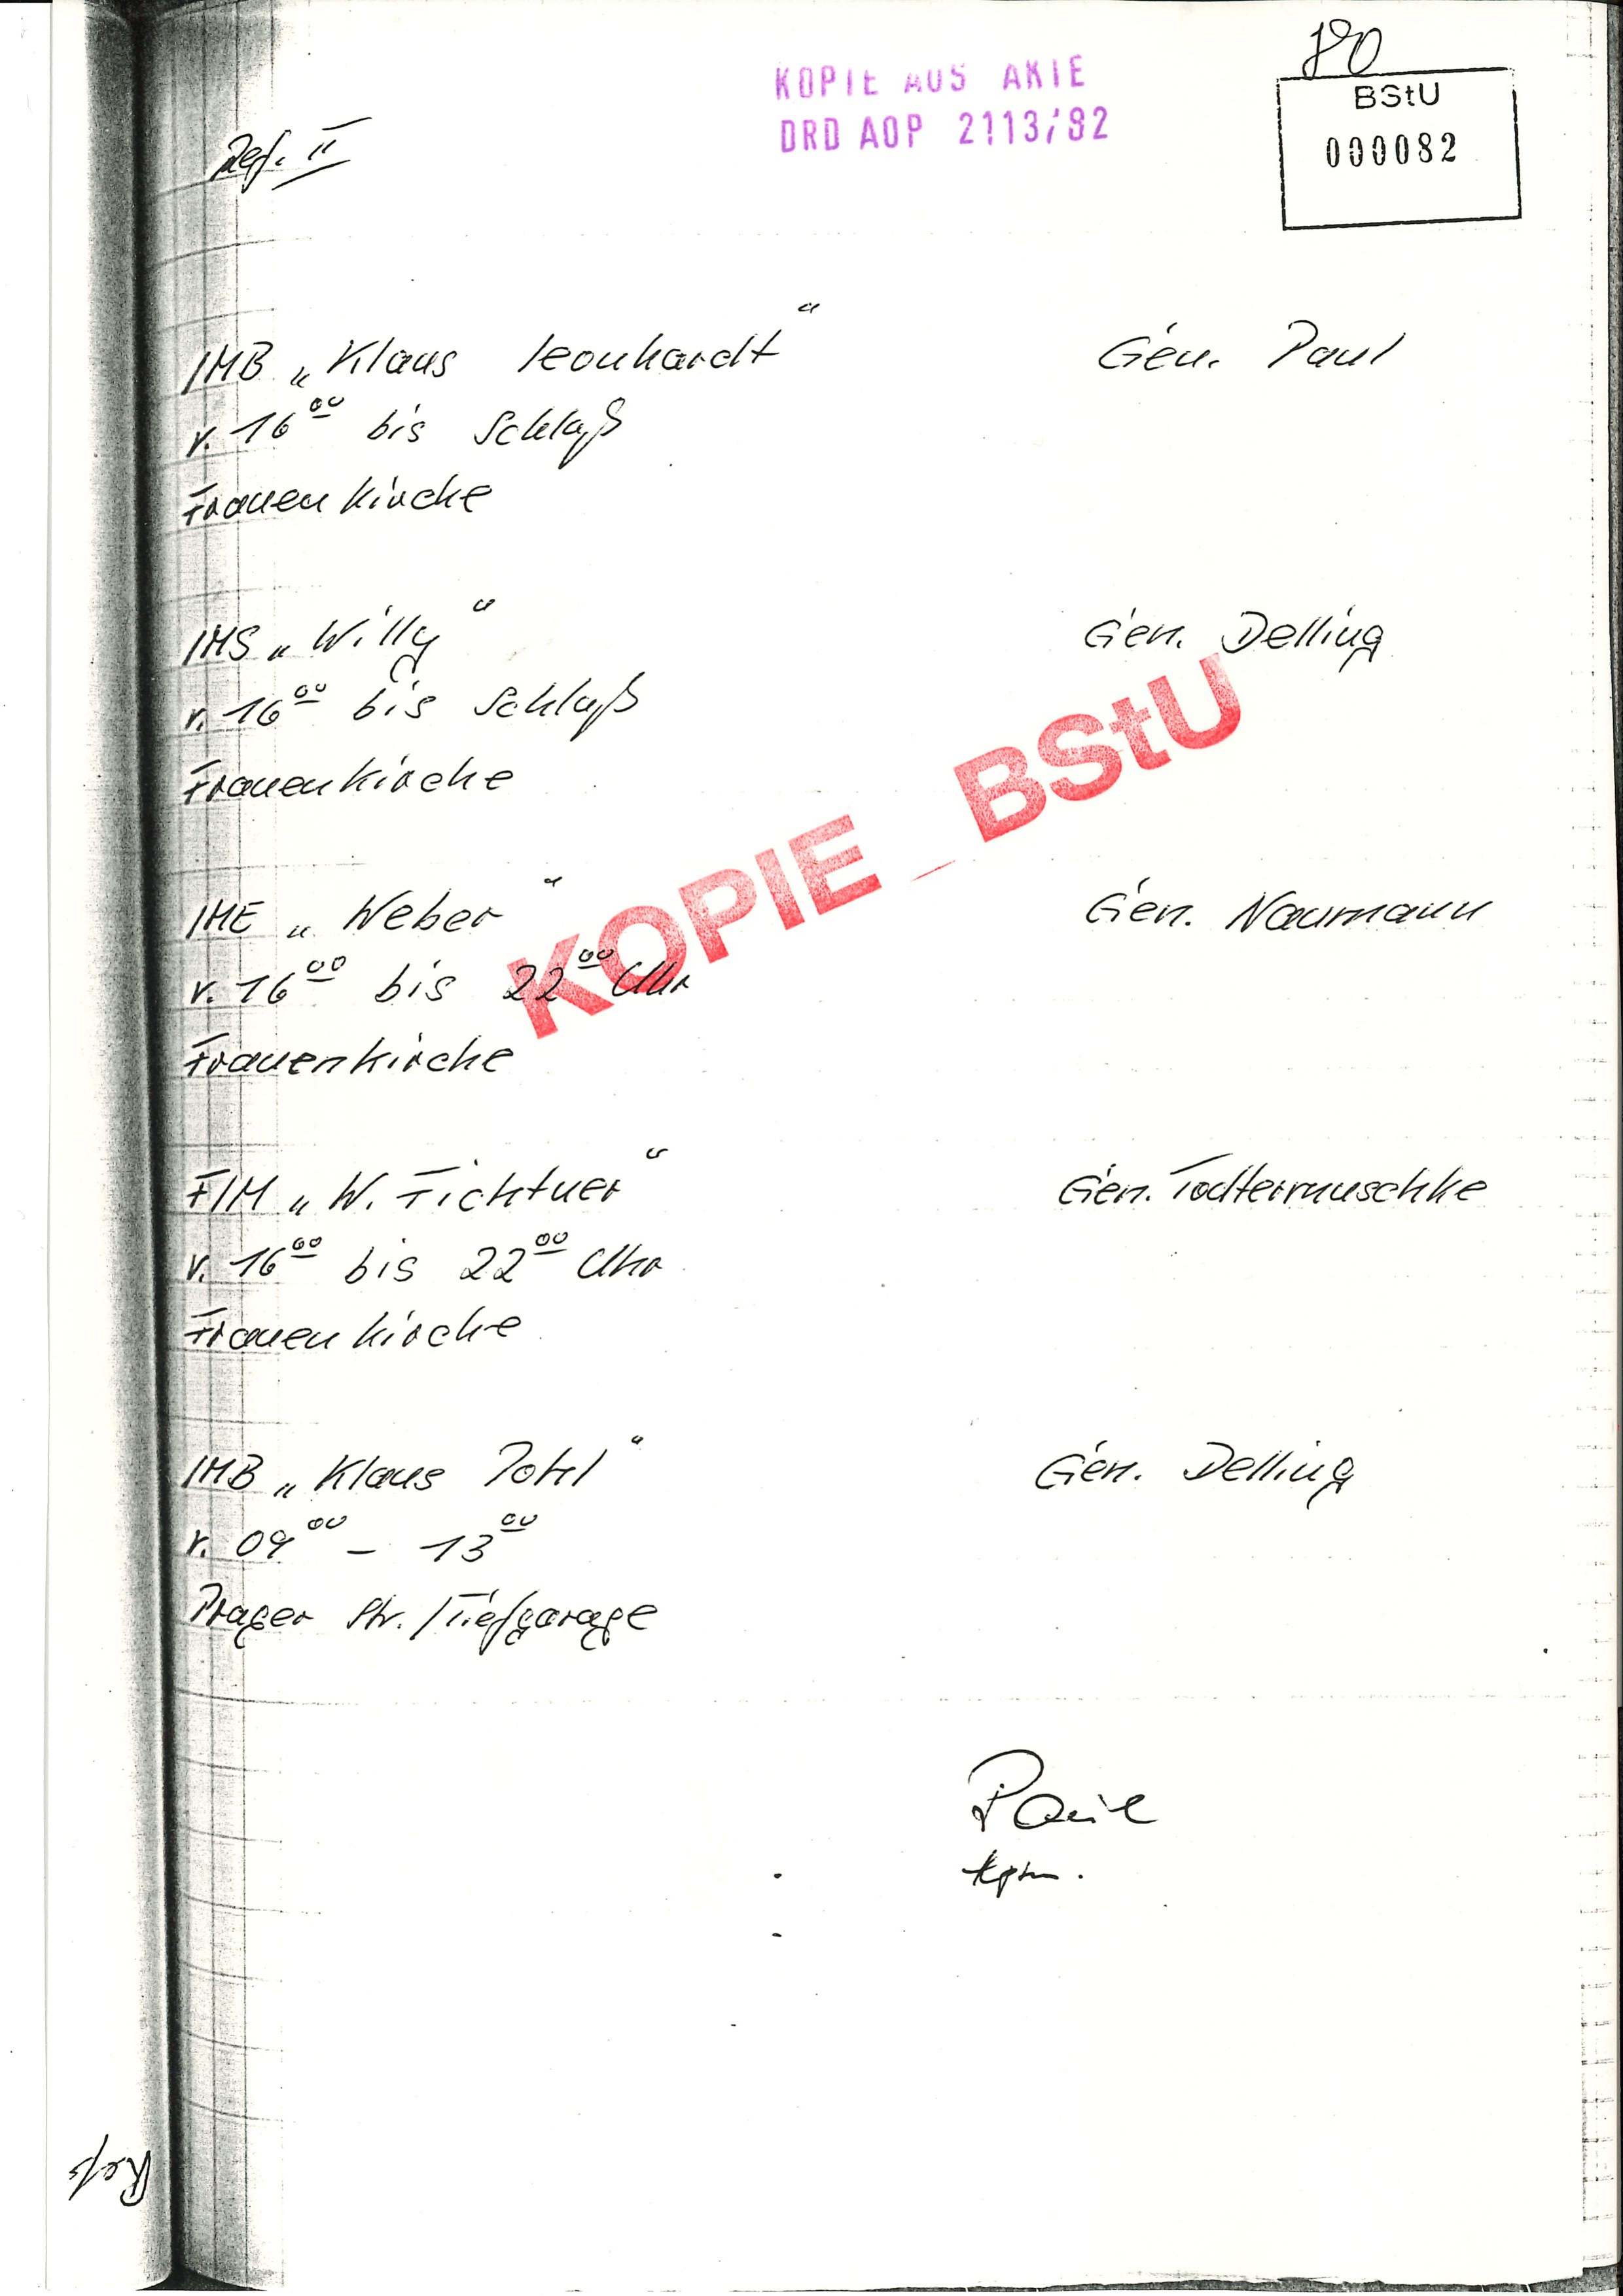 80
KOPIE AUS AKTE
DRD AOP 2113/82
BStU
000082
Ref. II
IMB „Klaus Leonhardt“ Gen. Paul
v. 16⁰⁰ bis Schluß
Frauenkirche
IMS „Willy“ Gen. Delling
v. 16⁰⁰ bis Schluß
Frauenkirche
KOPIE BStU
IME „Weber“ Gen. Naumann
v. 16⁰⁰ bis 22⁰⁰ Uhr
Frauenkirche
FIM „W. Fichtner“ Gen. Todtermuschke
v. 16⁰⁰ bis 22⁰⁰ Uhr
Frauenkirche
IMB „Klaus Pohl“ Gen. Delling
v. 09⁰⁰ – 13⁰⁰
Prager Str. / Tiefgarage
Paul
Hptm.